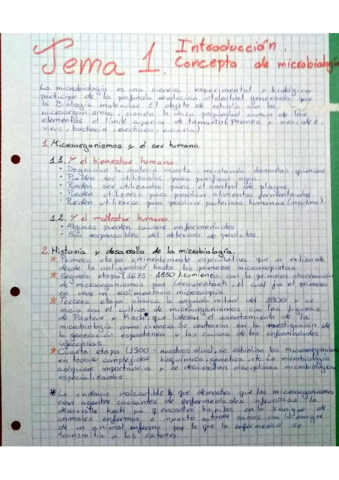 Tema 1. Introducción.
Concepto de microbiología
La microbiología es una ciencia experimental y biológica
partícipe de la profunda revolución intelectual generada por
la Biología molecular. El objeto de estudio son los
microorganismos, siendo la única propiedad común de los
elementos el límite superior de tamaño
virus, bacteria, archaea, eucaria)
1. Microorganismos y el ser humano.
1.1. Y el bienestar humano.
• Degradan la materia muerta, reciclando elementos químicos
• Pueden ser utilizados para purificar aguas.
• Pueden ser utilizados para el control de plagas.
• Pueden utilizarse para producir alimentos fermentados.
• Pueden utilizarse para producir proteínas humanas (insulina).
1.2. Y el malestar humano.
• Algunos pueden causar enfermedades
• Son responsables del deterioro de productos.
2. Historia y desarrollo de la microbiología.
* Primera etapa, eminentemente especulativa que se extiende
desde la antigüedad hasta los primeros microscopistas
* Segunda etapa (1675-1850) comienza con la primera observación
de microorganismos por Leeuwenhoek, el cual fue el primero
en usar un rudimentario microscopio.
* Tercera etapa abarca la segunda mitad del 1800 y se
inicia con el cultivo de microorganismos con las figuras
de Pasteur y Koch que lideran el asentamiento de la
microbiología como ciencia. Se centraron en la investigación de
la generación espontánea y las causas de las enfermedades
infecciosas.
* Cuarta etapa (1900-nuestros días), se estudian los microorganismos
en toda su complejidad
adquiere importancia y se desarrollan disciplinas microbiológicas
especializadas.
* La evidencia indiscutible que demostró que los microorganismos
son agentes causantes de enfermedades infecciosas la
desarrolla Koch, ya que encontró bacilos en la sangre de
animales enfermos, e inyectó ratones sanos con la sangre
de un animal enfermo, por lo que la enfermedad se
transmitía a los ratones.